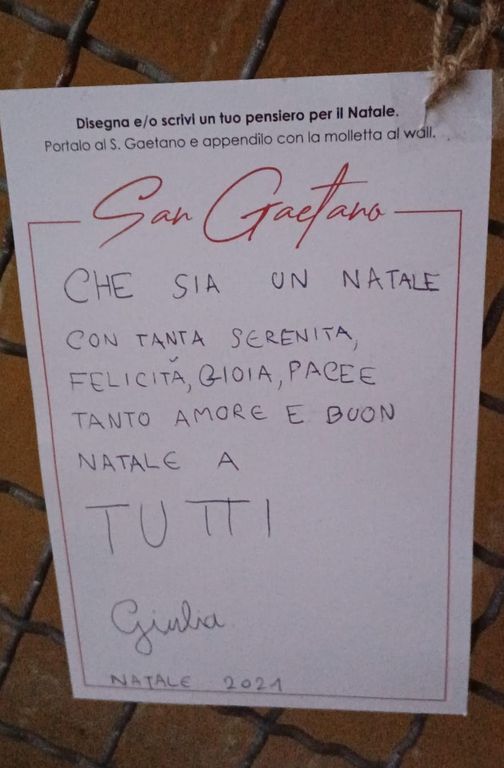 Disegna e/o scrivi un tuo pensiero per il Natale.
Portalo al S. Gaetano e appendilo con la molletta al wall.
San Gaetano
CHE SIA UN NATALE
CON TANTA SERENITA,
FELICITÀ, GIOIA, PACE E
TANTO AMORE E BUON
NATALE A
TUTTI
Giulia
NATALE 2021